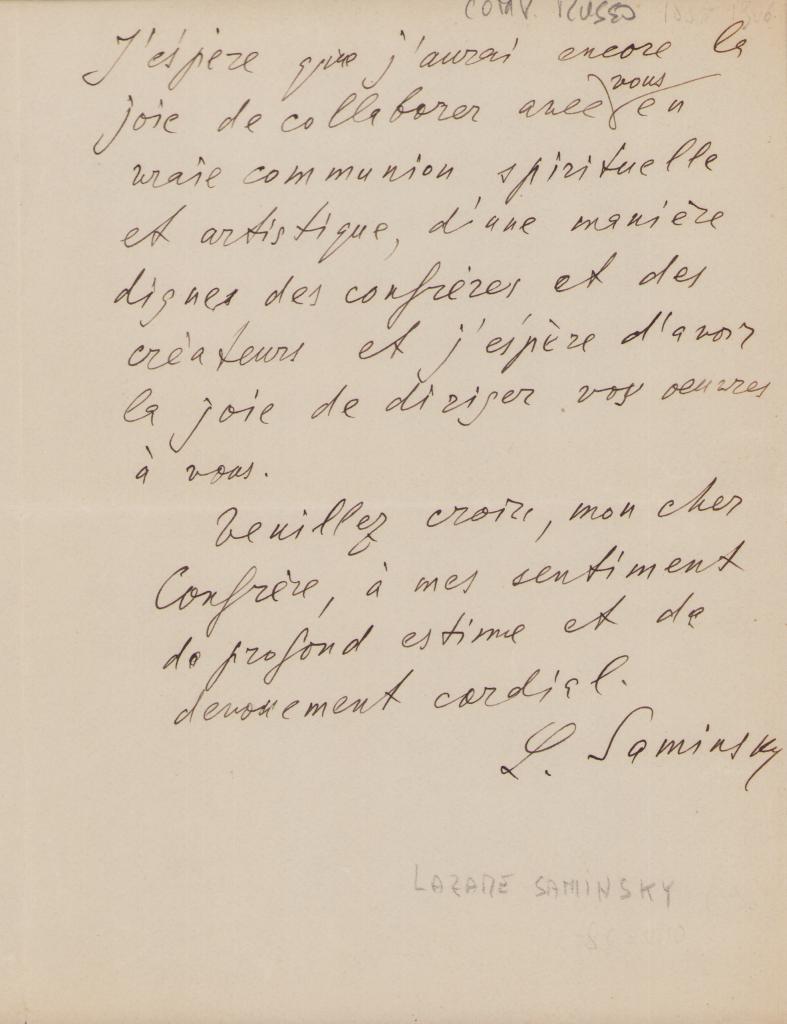 COMP. RUSSO
J'espère que j'aurai encore la
joie de collaborer avec vous en
vraie communion spirituelle
et artistique, d'une manière
dignes des confrères et des
créateurs et j'espère d'avoir
la joie de diriger vos oeuvres
à vous.
Veuillez croire, mon cher
Confrère, à mes sentiment
de profond estime et de
devouement cordial.
L. Saminsky
LAZARE SAMINSKY